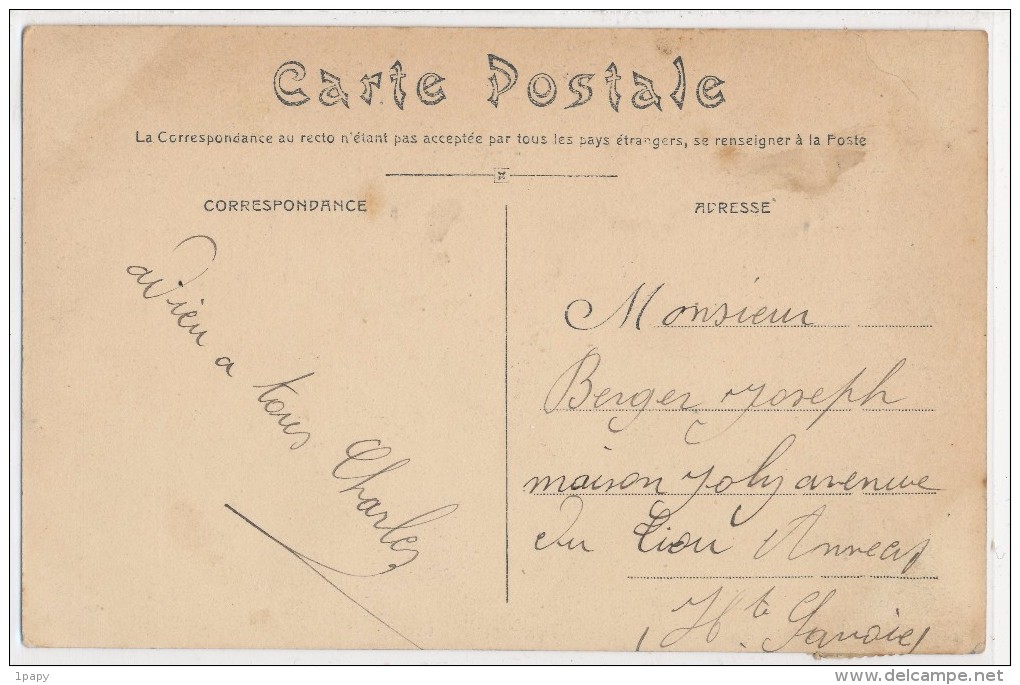 Carte Postale
La Correspondance au recto n'étant pas acceptée par tous les pays étrangers, se renseigner à la Poste
CORRESPONDANCE
adieu a tous Charles
ADRESSE
Monsieur
Berger Joseph
maison Joly avenue
du Annecy
(Hte Savoie)
1papy
www.delcampe.net